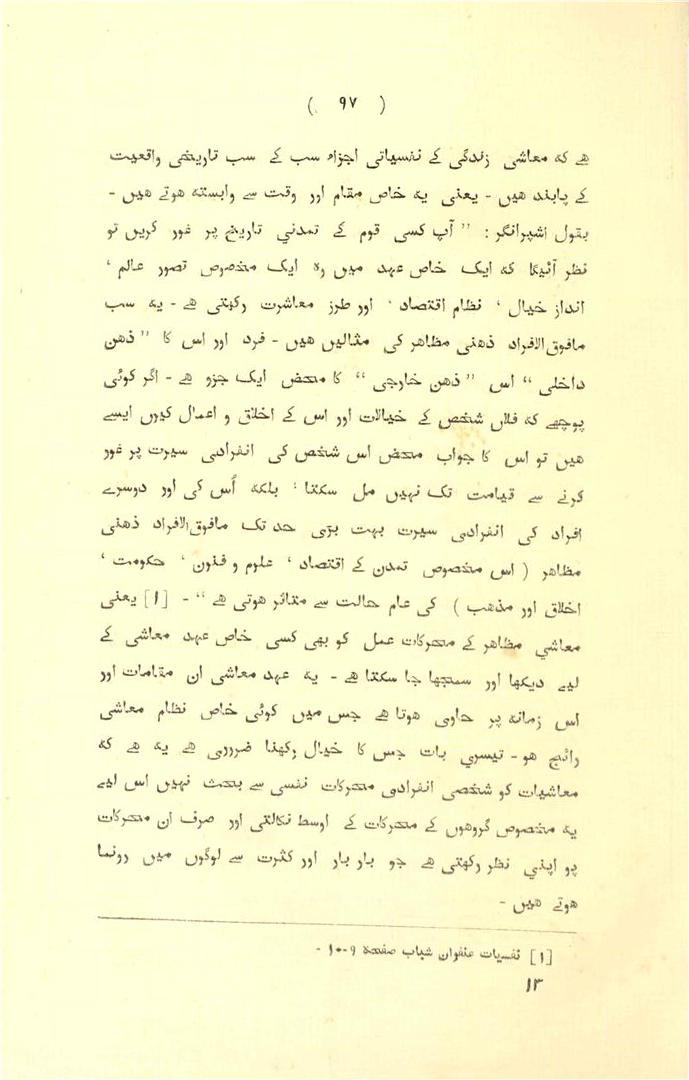 ( ۹۷ )
هے که معاشی زندگی کے نفسیاتی اجزاء سب کے سب تاریخی واقعیت
کے پابند هیں - یعنی یه خاص مقام اور وقت سے وابسته هوتے هیں -
بقول اشپرانگر : ” آپ کسی قوم کے تمدني تاریخ پر غور کریں تو
نظر آئیگا که ایک خاص عهد میں وہ ایک مخصوص تصور عالم ‘
انداز خیال ‘ نظام اقتصاد ‘ اور طرز معاشرت رکهتی هے - یه سب
مافوق‌الافراد ذهنی مظاهر کی مثالیں هیں - فرد اور اس کا ” ذهن
داخلی “ اس ” ذهن خارجی “ کا محض ایک جزو هے - اگر کوئی
پوچهے که فلاں شخص کے خیالات اور اس کے اخلاق و اعمال کیوں ایسے
هیں تو اس کا جواب محض اس شخص کی انفرادی سیرت پر غور
کرنے سے قیامت تک نهیں مل سکتا ‘ بلکه اُس کی اور دوسرے
افراد کی انفرادی سیرت بهت بڑی حد تک مافوق‌الافراد ذهنی
مظاهر ( اس مخصوص تمدن کے اقتصاد ‘ علوم و فنون ‘ حکومت ‘
اخلاق اور مذهب ) کی عام حالت سے متاثر هوتی هے “ - [۱] یعنی
معاشي مظاهر کے محرکات عمل کو بهی کسی خاص عهد معاشی کے
لیے دیکها اور سمجها جا سکتا هے - یه عهد معاشی ان مقامات اور
اس زمانه پر حاوی هوتا هے جس میں کوئی خاص نظام معاشی
رائج هو - تیسري بات جس کا خیال رکهنا ضروری هے یه هے که
معاشیات کو شخصی انفرادی محرکات نفسی سے بحث نهیں اس لیے
یه مخصوص گروهوں کے محرکات کے اوسط نکالتی اور صرف ان محرکات
پر اپني نظر رکهتی هے جو بار بار اور کثرت سے لوگوں میں رونما
هوتے هیں -
[۱] نفسیات عنفوان شباب صفحه ۹-۱۰ -
۱۳